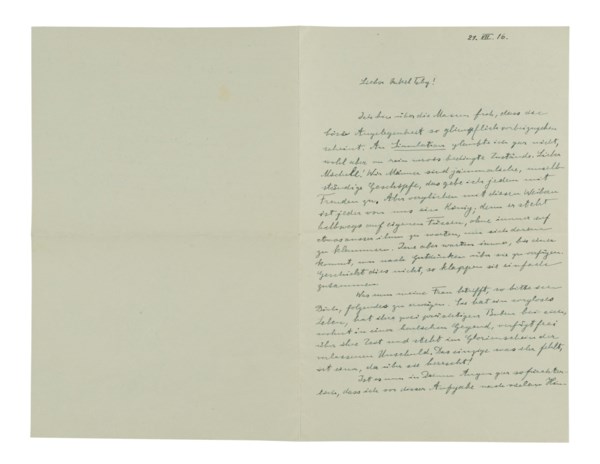 21. VII. 16.
Lieber Michele!
Ich bin über die Massen froh, dass die
böse Angelegenheit so glimpflich vorbeizugehen
scheint. An Simulation glaubte ich gar nicht,
wohl aber an rein nervös bedingte Zustände. Lieber
Michele! Wir Männer sind jämmerliche, unselb-
ständige Geschöpfe, das gebe ich jedem mit
Freuden zu. Aber verglichen mit diesen Weibern
ist jeder von uns ein König; denn er steht
halbwegs auf eigenen Füssen, ohne immer auf
etwas ausser ihm zu warten, um sich daran
zu klammern. Jene aber warten immer, bis einer
kommt, um nach Gutdünken über sie zu verfügen.
Geschieht dies nicht, so klappen sie einfach
zusammen.
Was nun meine Frau betrifft, so bitte ich
Dich, folgendes zu erwägen. Sie hat ein sorgloses
Leben, hat ihre zwei prächtigen Buben bei sich,
wohnt in einer herrlichen Gegend, verfügt frei
über ihre Zeit und steht im Glorienschein der
verlassenen Unschuld. Das einzige was ihr fehlt,
ist einer, der über sie herrscht.
Ist es nun in Deinen Augen gar so fürchter-
lich, dass ich vor dieser Aufgabe